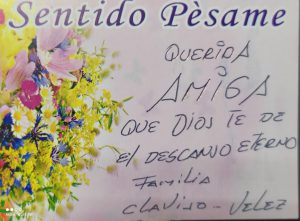 Sentido Pèsame
QUERIDA
AMIGA
QUE DIOS TE DE
El DESCANSO ETERNO
FAMILIA
CLAVIJO - VELEZ